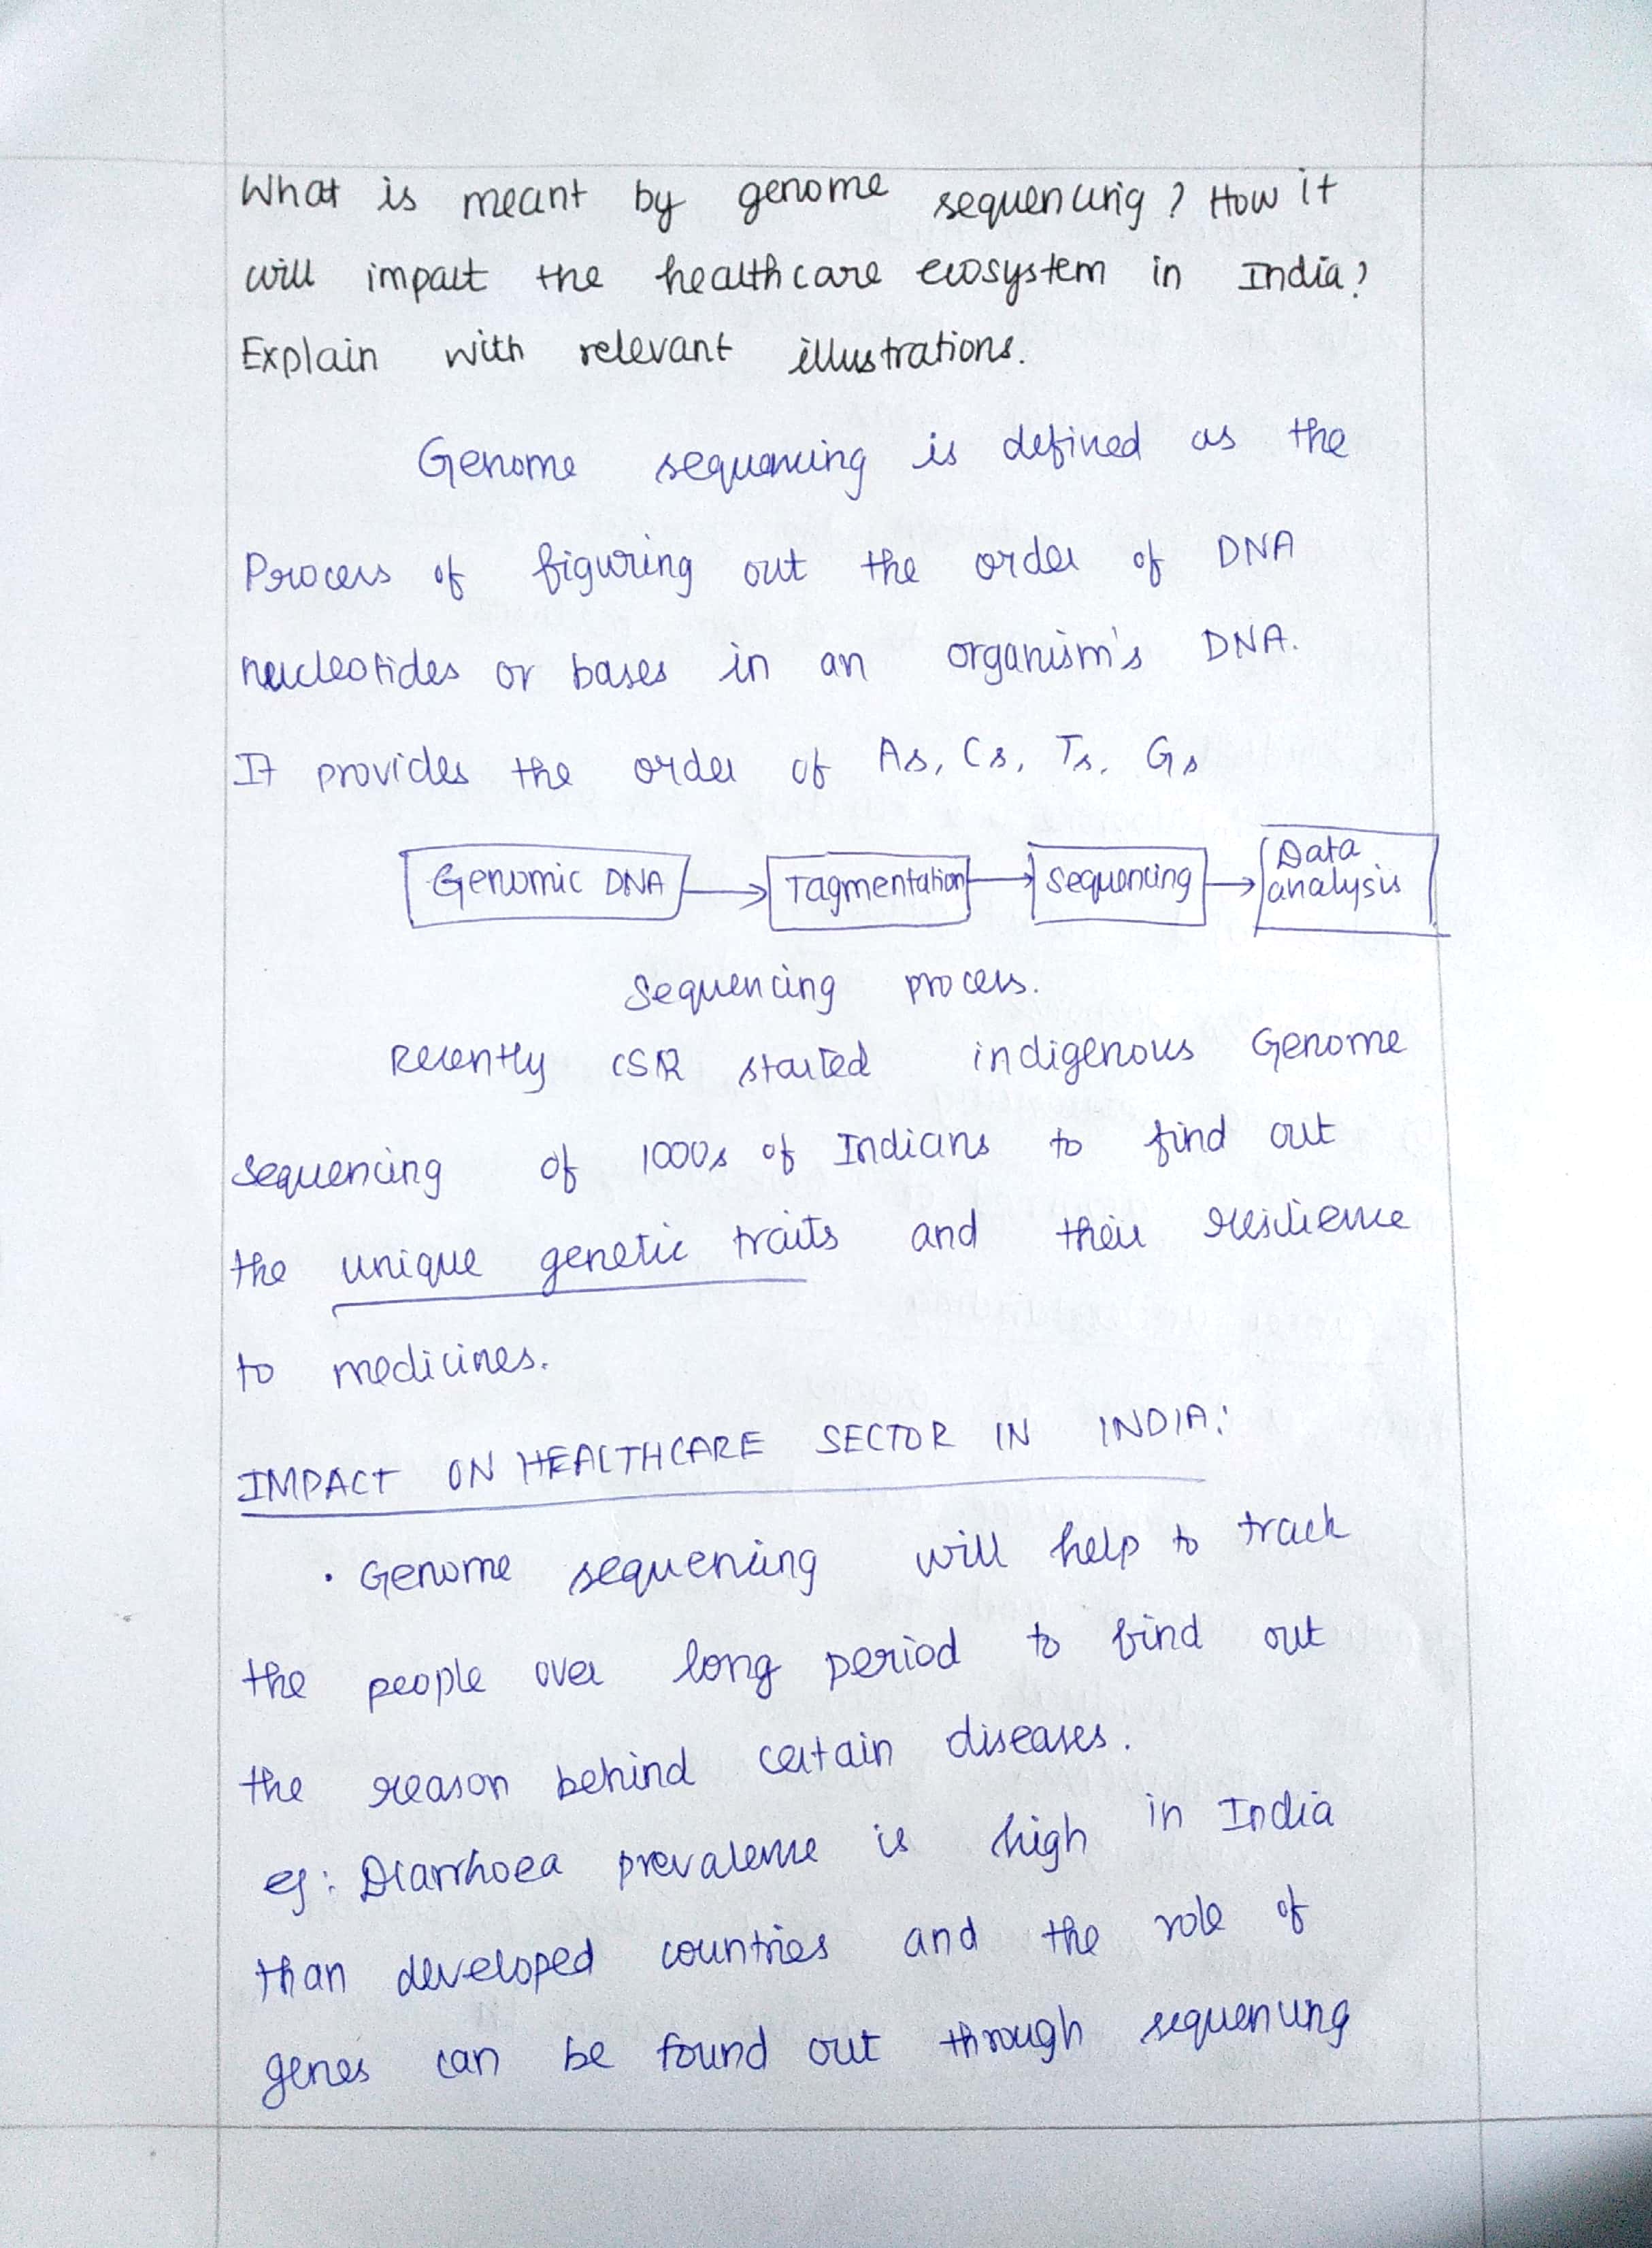 What is meant by genome sequencing ? How it
will impact the healthcare ecosystem in India ?
Explain with relevant illustrations.
Genome sequencing is defined as the
Process of figuring out the order of DNA
nucleotides or bases in an organism's DNA.
It provides the order of As, Cs, Ts, Gs
Genomic DNA → Tagmentation → Sequencing → Data analysis
Sequencing process.
Recently CSIR started indigenous Genome
Sequencing of 1000s of Indians to find out
the unique genetic traits and their resilience
to medicines.
IMPACT ON HEALTHCARE SECTOR IN INDIA:
• Genome sequencing will help to track
the people over long period to find out
the reason behind certain diseases.
eg: Diarrhoea prevalence is high in India
than developed countries and the role of
genes can be found out through sequencing